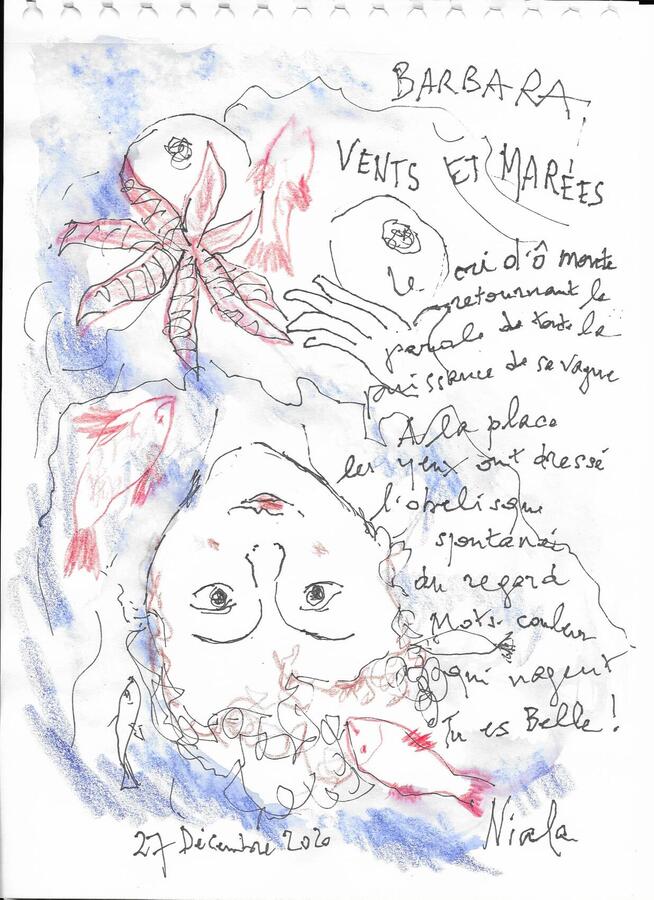 BARBARA
VENTS ET MARÉES
Le cri d'ô monte
retournant la
parole de toute la
puissance de sa vague
A la place
les yeux ont dressé
l'obélisque
spontané
du regard
Mots-couleur
qui nagent
Tu es Belle !
Niala
27 Décembre 2020